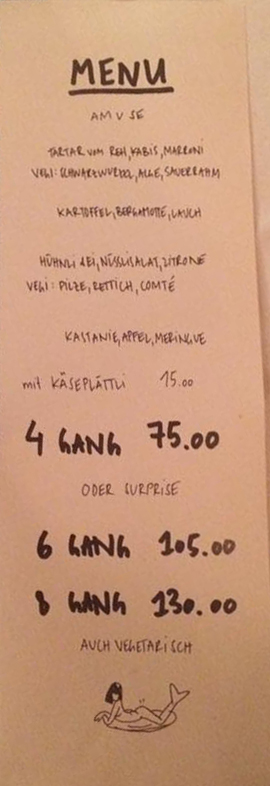 MENU
AMUSE
TARTAR VOM REH, KABIS, MARRONI
VEGI: SCHWARZWURZEL, ALGE, SAUERRAHM
KARTOFFEL, BERGAMOTTE, LAUCH
HÜHNLI &EI, NÜSSLISALAT, ZITRONE
VEGI: PILZE, RETTICH, COMTÉ
KASTANIE, APFEL, MERINGUE
mit KÄSEPLÄTTLI 15.00
4 GANG 75.00
ODER SURPRISE
6 GANG 105.00
8 GANG 130.00
AUCH VEGETARISCH